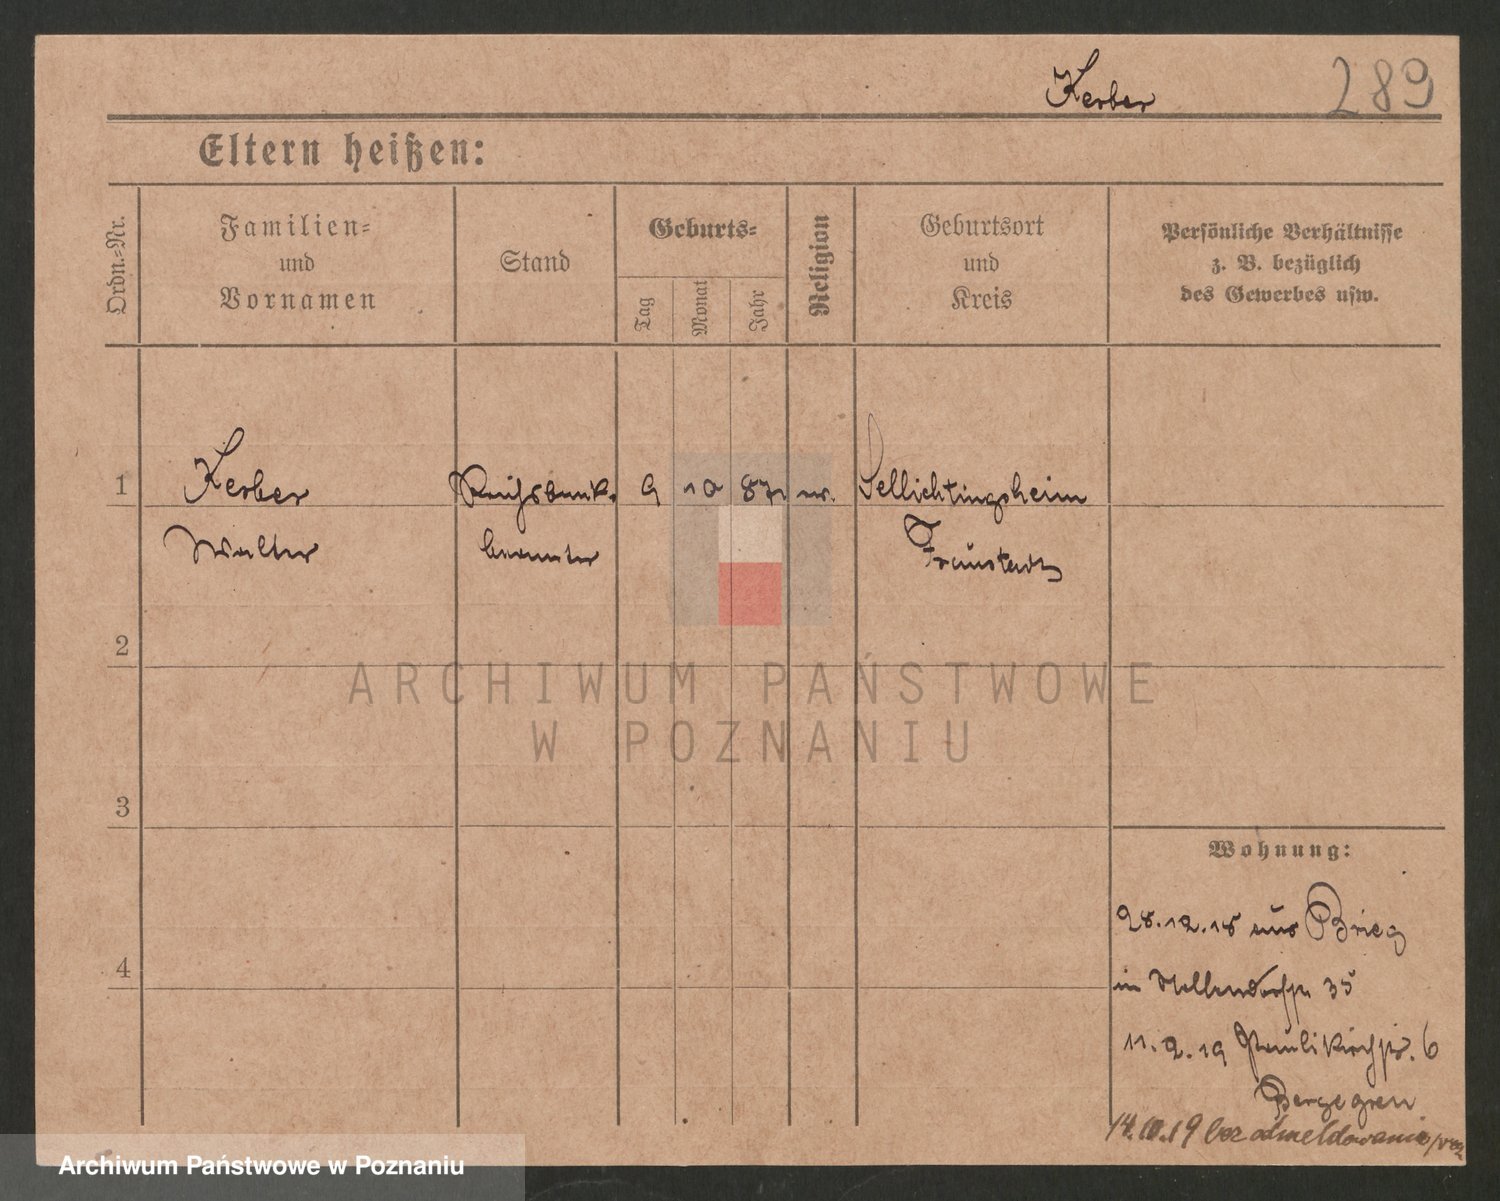 Kerber 289
Eltern heißen:
Ordn.-Nr.
Familien-
und
Vornamen
Stand
Geburts-
Tag
Monat
Jahr
Religion
Geburtsort
und
Kreis
Persönliche Verhältnisse
z. B. bezüglich
des Gewerbes usw.
1 Kerber Reichsbank- 9 10 87 Schlichtingsheim
Walter beamter Fraustadt
2
3
4
Wohnung:
28.12.18 aus Brieg
in 35
11.2.19 Paulikirchstr. 6
14.10.19 bez odmeldowania
ARCHIWUM PAŃSTWOWE
W POZNANIU
Archiwum Państwowe w Poznaniu